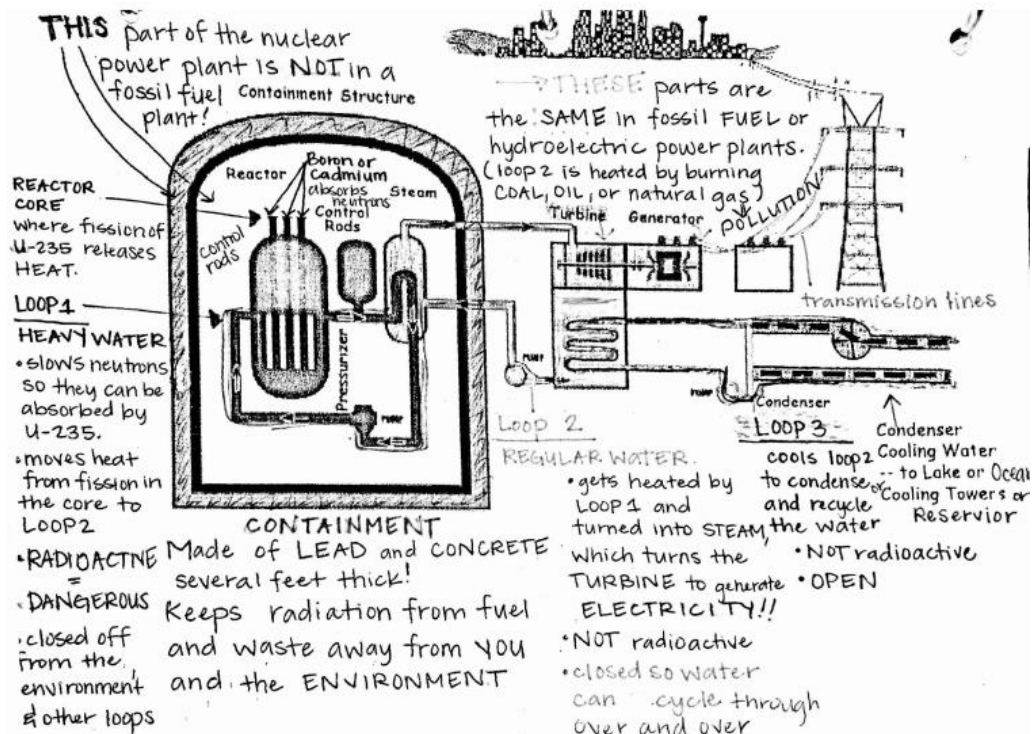 THIS part of the nuclear
power plant is NOT in a
fossil fuel
plant!
Containment Structure
THESE parts are
the SAME in fossil FUEL or
hydroelectric power plants.
(loop 2 is heated by burning
COAL, OIL, or natural gas)
POLLUTION
Reactor
Boron or
Cadmium
absorbs
neutrons
Control
Rods
Steam
control
rods
Pressurizer
PUMP
Turbine
Generator
transmission lines
PUMP
PUMP
Condenser
REACTOR
CORE
where fission of
U-235 releases
HEAT.
LOOP 1
HEAVY WATER
• slows neutrons
so they can be
absorbed by
U-235.
• moves heat
from fission in
the core to
LOOP2
• RADIOACTIVE
=
DANGEROUS
• closed off
from the
environment
& other loops
CONTAINMENT
Made of LEAD and CONCRETE
several feet thick!
Keeps radiation from fuel
and waste away from YOU
and the ENVIRONMENT
LOOP 2
REGULAR WATER.
• gets heated by
LOOP 1 and
turned into STEAM,
which turns the
TURBINE to generate
ELECTRICITY!!
• NOT radioactive
• closed so water
can cycle through
over and over
LOOP 3
cools loop2
to condense
and recycle
the water
• NOT radioactive
• OPEN
Condenser
Cooling Water
-- to Lake or Ocean
or Cooling Towers or
Reservior